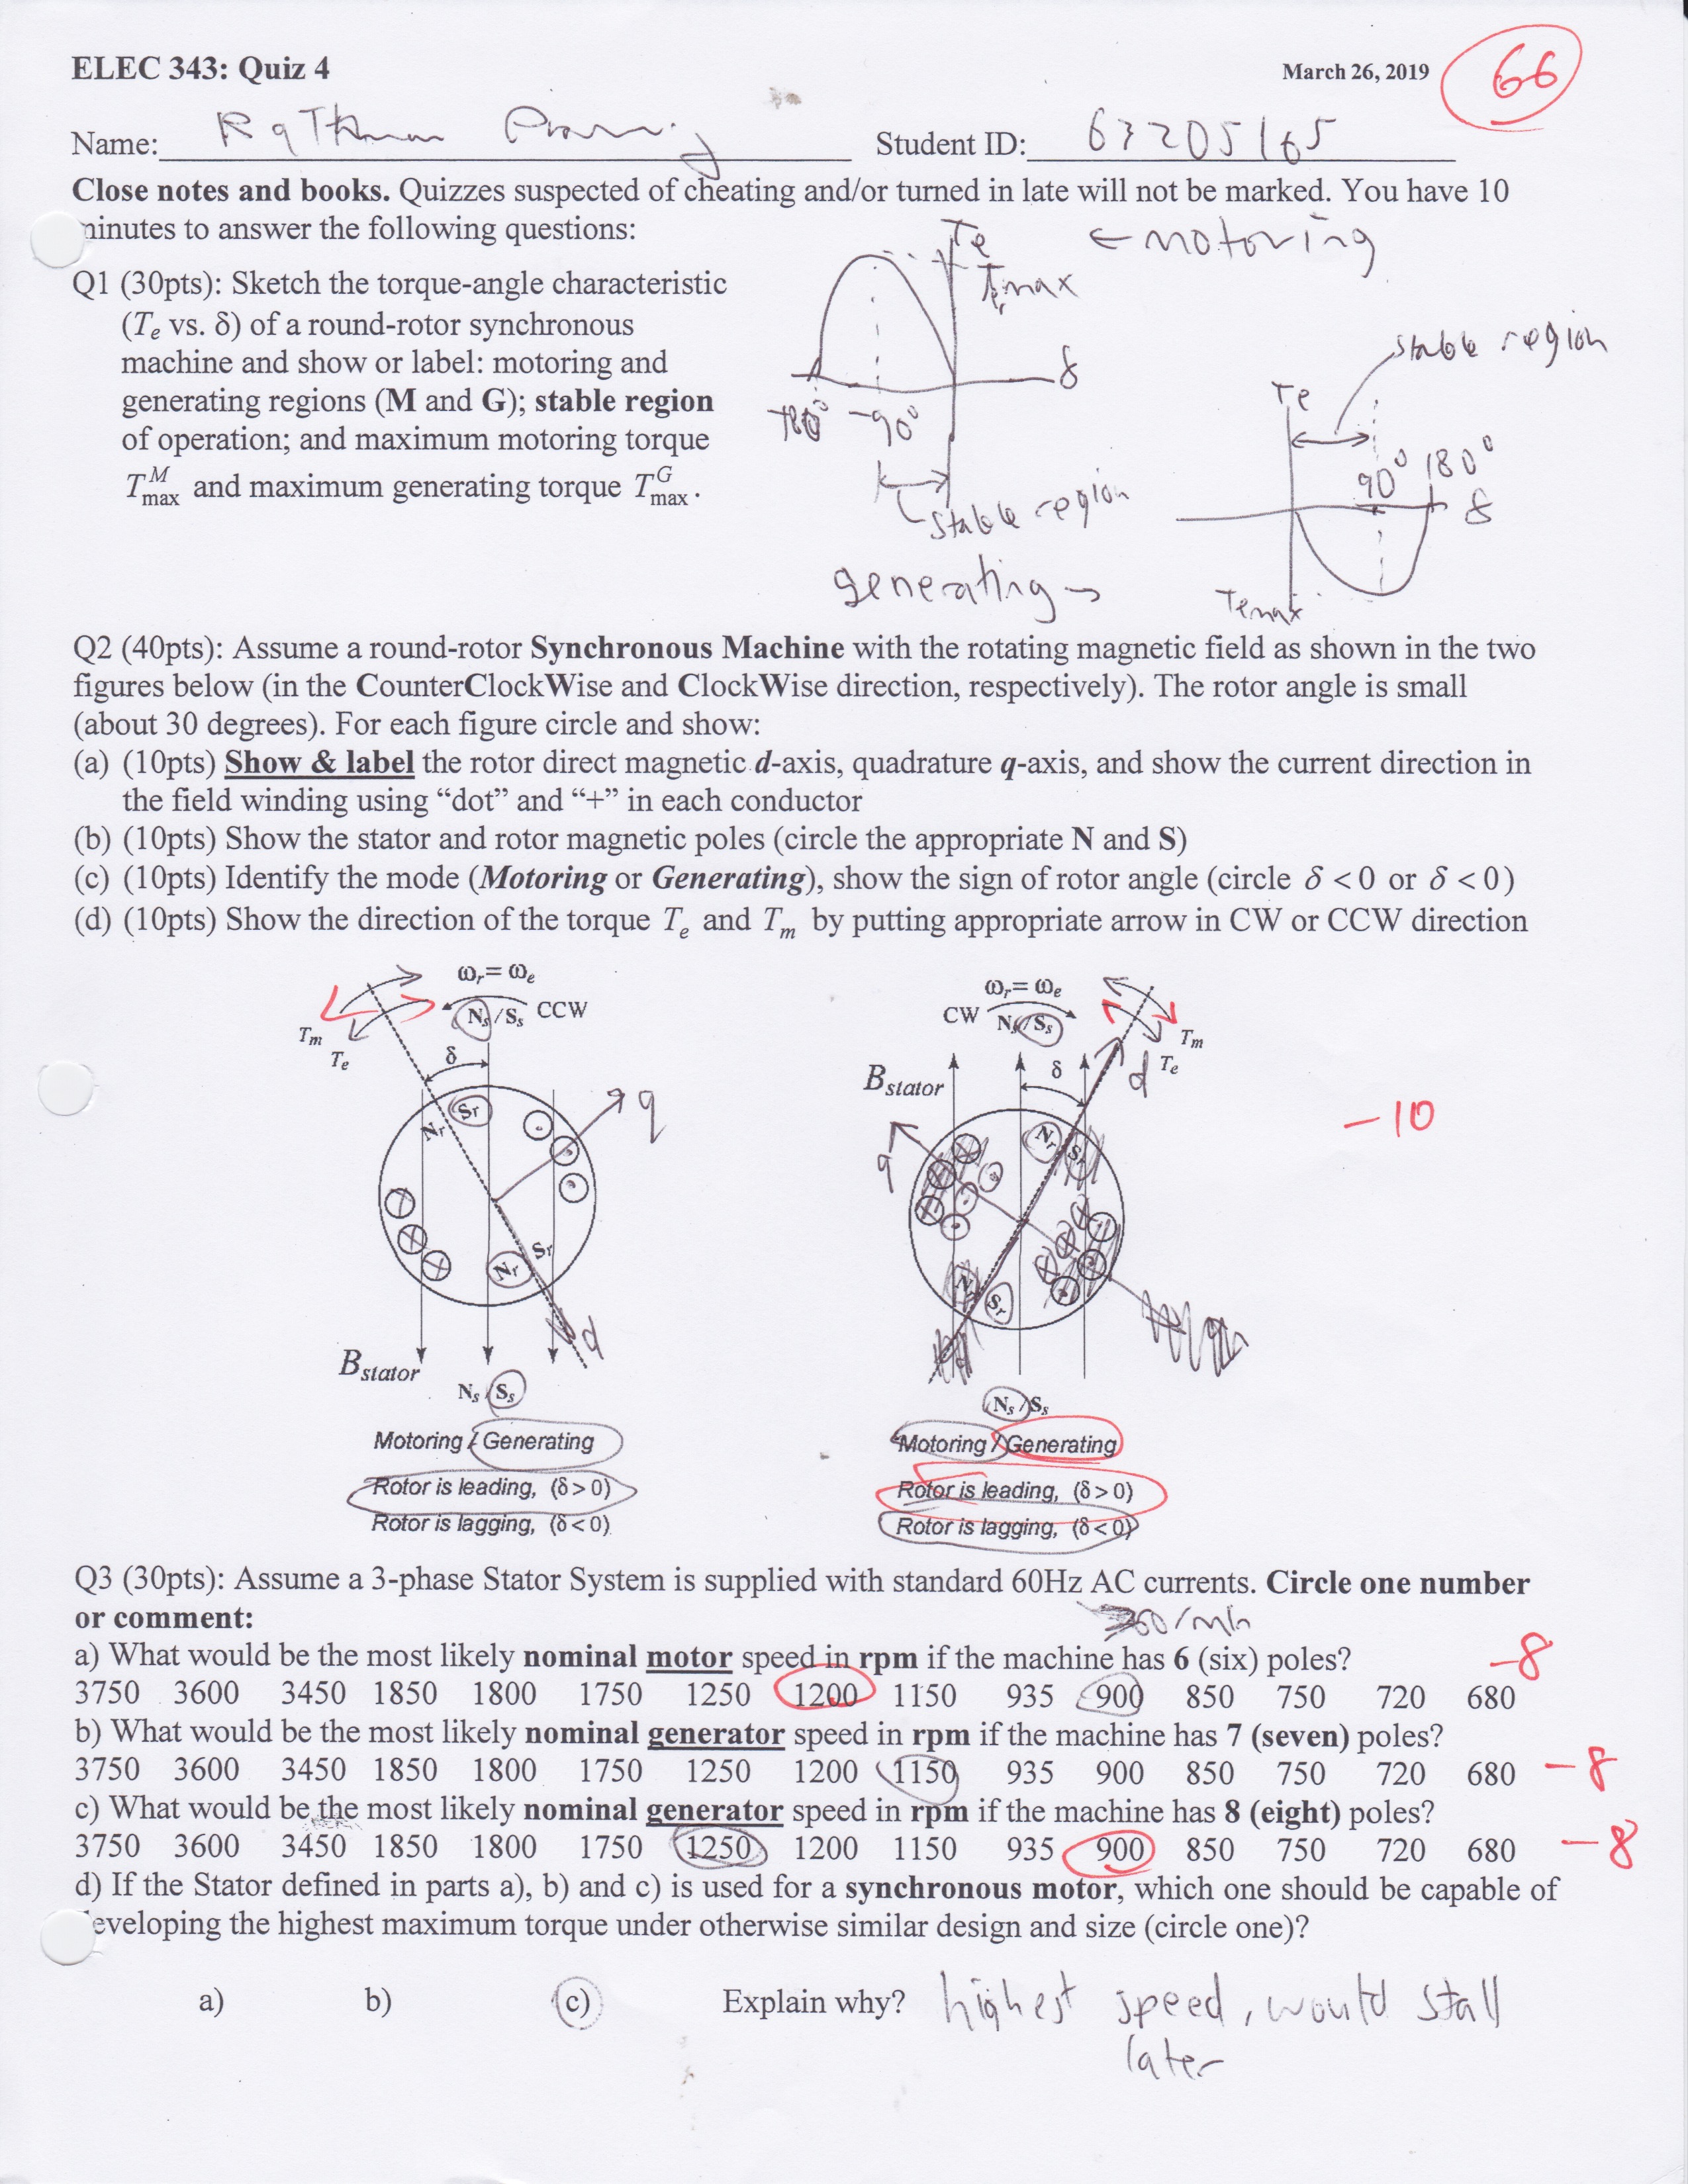 ELEC 343: Quiz 4
March 26, 2019
66
Name:
Student ID: 63205165
Close notes and books. Quizzes suspected of cheating and/or turned in late will not be marked. You have 10
minutes to answer the following questions:
Te
← motoring
Temax
Q1 (30pts): Sketch the torque-angle characteristic
(Te vs. δ) of a round-rotor synchronous
machine and show or label: motoring and
generating regions (M and G); stable region
of operation; and maximum motoring torque
T^M_max and maximum generating torque T^G_max.
δ
-180° -90°
stable region
stable region
Te
90° 180°
δ
generating →
Temax
Q2 (40pts): Assume a round-rotor Synchronous Machine with the rotating magnetic field as shown in the two
figures below (in the CounterClockWise and ClockWise direction, respectively). The rotor angle is small
(about 30 degrees). For each figure circle and show:
(a) (10pts) Show & label the rotor direct magnetic d-axis, quadrature q-axis, and show the current direction in
the field winding using “dot” and “+” in each conductor
(b) (10pts) Show the stator and rotor magnetic poles (circle the appropriate N and S)
(c) (10pts) Identify the mode (Motoring or Generating), show the sign of rotor angle (circle δ < 0 or δ < 0)
(d) (10pts) Show the direction of the torque Te and Tm by putting appropriate arrow in CW or CCW direction
ωr= ωe
Ns/Ss CCW
Tm
Te
δ
Sr
Nr
q
Sr
Nr
d
Bstator
Ns/Ss
Motoring / Generating
Rotor is leading, (δ > 0)
Rotor is lagging, (δ < 0)
ωr= ωe
CW Ns/Ss
Tm
Te
d
δ
Bstator
-10
q
Nr
Sr
Nr
Sr
Ns/Ss
Motoring / Generating
Rotor is leading, (δ > 0)
Rotor is lagging, (δ < 0)
Q3 (30pts): Assume a 3-phase Stator System is supplied with standard 60Hz AC currents. Circle one number
or comment:
60/min
a) What would be the most likely nominal motor speed in rpm if the machine has 6 (six) poles?
-8
3750 3600 3450 1850 1800 1750 1250 1200 1150 935 900 850 750 720 680
b) What would be the most likely nominal generator speed in rpm if the machine has 7 (seven) poles?
3750 3600 3450 1850 1800 1750 1250 1200 1150 935 900 850 750 720 680 -8
c) What would be the most likely nominal generator speed in rpm if the machine has 8 (eight) poles?
3750 3600 3450 1850 1800 1750 1250 1200 1150 935 900 850 750 720 680 -8
d) If the Stator defined in parts a), b) and c) is used for a synchronous motor, which one should be capable of
developing the highest maximum torque under otherwise similar design and size (circle one)?
a) b) c) Explain why? highest speed, would stall
later